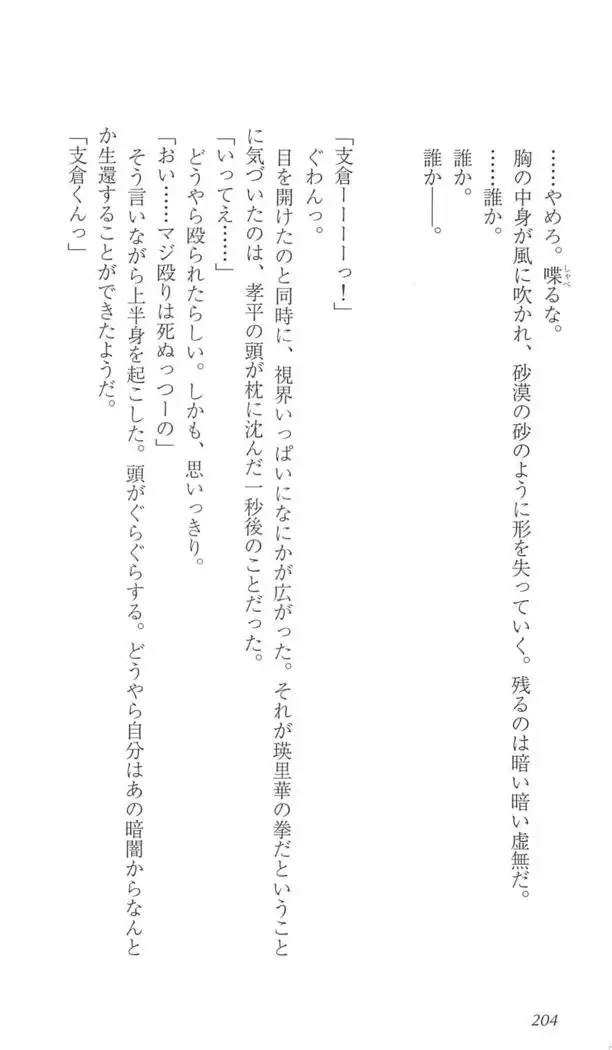 ……やめろ。喋るな。
しゃべ
胸の中身が風に吹かれ、砂漠の砂のように形を失っていく。残るのは暗い暗い虚無だ。
……誰か。
誰か。
誰か――。
「支倉ーーーーっ！」
ぐわんっ。
目を開けたのと同時に、視界いっぱいになにかが広がった。それが瑛里華の拳だということ
に気づいたのは、孝平の頭が枕に沈んだ一秒後のことだった。
「いってえ……」
どうやら殴られたらしい。しかも、思いっきり。
「おい……マジ殴りは死ぬっつーの」
そう言いながら上半身を起こした。頭がぐらぐらする。どうやら自分はあの暗闇からなんと
か生還することができたようだ。
「支倉くんっ」
204